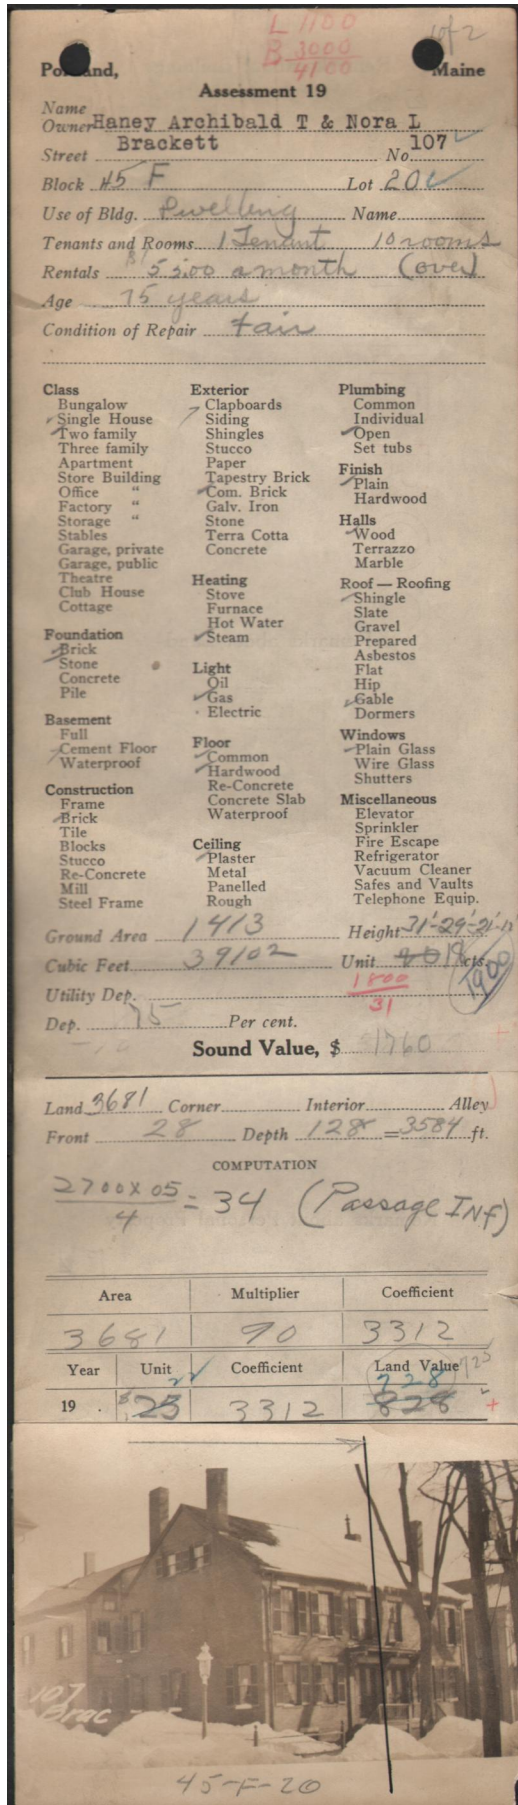 L 1100
B 3000
4100
1 of 2
Portland, Maine
Assessment 19
Name
Owner Haney Archibald T & Nora L
Street Brackett No. 107
Block 45 F Lot 20
Use of Bldg. Dwelling Name
Tenants and Rooms 1 Tenant 10 rooms
Rentals 55.00 a month (over)
Age 75 years
Condition of Repair Fair
Class
Bungalow
Single House
Two family
Three family
Apartment
Store Building
Office "
Factory "
Storage "
Stables
Garage, private
Garage, public
Theatre
Club House
Cottage
Foundation
Brick
Stone
Concrete
Pile
Basement
Full
Cement Floor
Waterproof
Construction
Frame
Brick
Tile
Blocks
Stucco
Re-Concrete
Mill
Steel Frame
Exterior
Clapboards
Siding
Shingles
Stucco
Paper
Tapestry Brick
Com. Brick
Galv. Iron
Stone
Terra Cotta
Concrete
Heating
Stove
Furnace
Hot Water
Steam
Light
Oil
Gas
Electric
Floor
Common
Hardwood
Re-Concrete
Concrete Slab
Waterproof
Ceiling
Plaster
Metal
Panelled
Rough
Plumbing
Common
Individual
Open
Set tubs
Finish
Plain
Hardwood
Halls
Wood
Terrazzo
Marble
Roof — Roofing
Shingle
Slate
Gravel
Prepared
Asbestos
Flat
Hip
Gable
Dormers
Windows
Plain Glass
Wire Glass
Shutters
Miscellaneous
Elevator
Sprinkler
Fire Escape
Refrigerator
Vacuum Cleaner
Safes and Vaults
Telephone Equip.
Ground Area 1413 Height 31'-29'-21'-12
Cubic Feet 39102 Unit 18 cts.
1900
Utility Dep. 1800
31
Dep. 75 Per cent.
Sound Value, $ 1760
Land 3681 Corner Interior Alley
Front 28 Depth 128 = 3584 ft.
COMPUTATION
2700 x 05
4 = 34 (Passage Inf)
Area Multiplier Coefficient
3681 90 3312
Year Unit Coefficient Land Value
22 728
19 . 25 3312 828
107
Brac
45-F-20